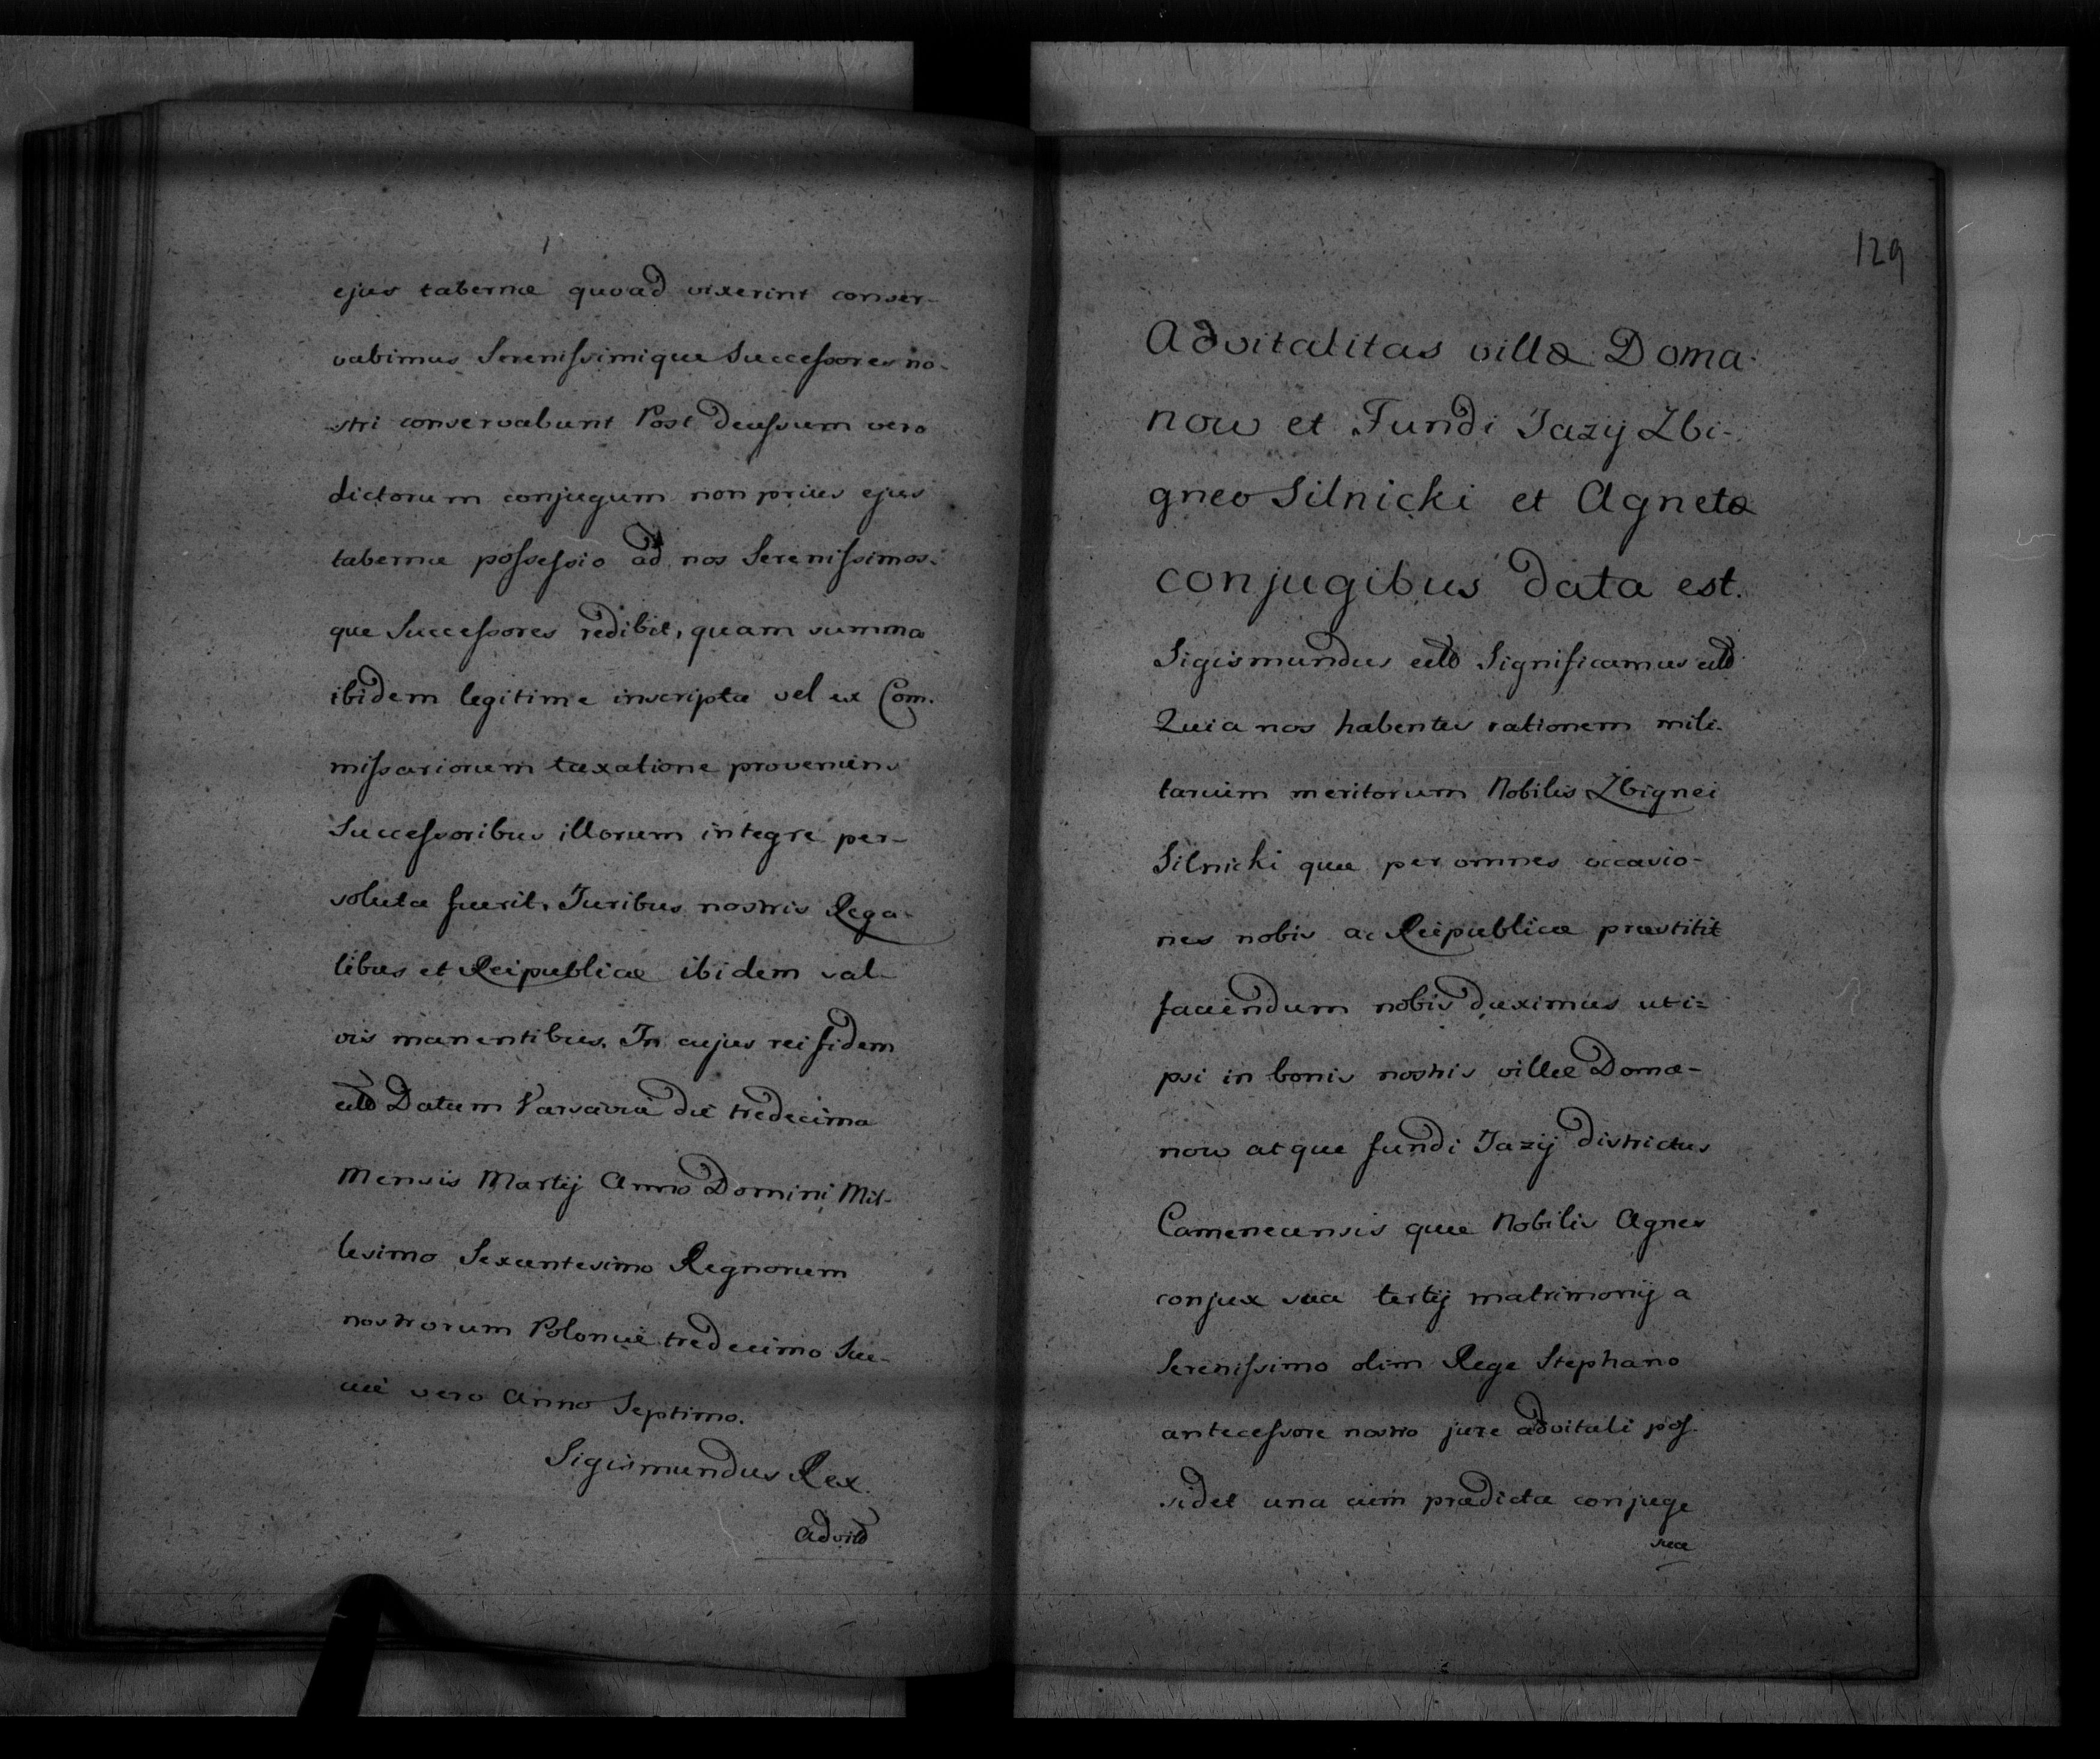 ejus tabernæ quoad vixerint conser-
vabimus Serenissimique Successores no-
stri conservabunt Post decessum vero
dictorum conjugum non prius ejus
tabernæ possessio ad nos Serenissimos-
que Successores redibit, quam summa
ibidem legitime inscripta vel ex Com-
missariorum taxatione proveniens
Successoribus illorum integre per-
soluta fuerit, Juribus nostris Rega-
libus et Reipublicæ ibidem sal-
vis manentibus. In cujus rei fidem
Datum Varsaviæ die tredecima
Mensis Martij Anno Domini Mil-
lesimo Sexcentesimo Regnorum
nostrorum Poloniæ tredecimo Sue-
ciæ vero Anno Septimo.
Sigismundus Rex.
129
Advitalitas villæ Doma-
now et Fundi Jazij Zbi-
gneo Silnicki et Agnetæ
conjugibus data est.
Sigismundus Significamus
Quia nos habentes rationem mili-
tarium meritorum Nobilis Zbignei
Silnicki quæ per omnes occasio-
nes nobis ac Reipublicæ præstitit
faciendum nobis duximus ut i=
psi in bonis nostris villæ Doma-
now atque fundi Jazij districtus
Camenecensis quæ Nobilis Agnes
conjux sua tertij matrimonij a
Serenissimo olim Rege Stephano
antecessore nostro jure advitali pos-
sidet una cum prædicta conjuge
sua